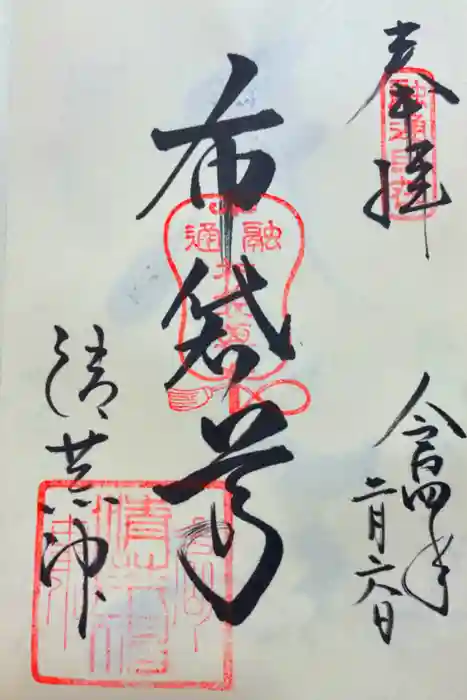 奉拝
令和四年
二月六日
布袋尊
融通
清荒神